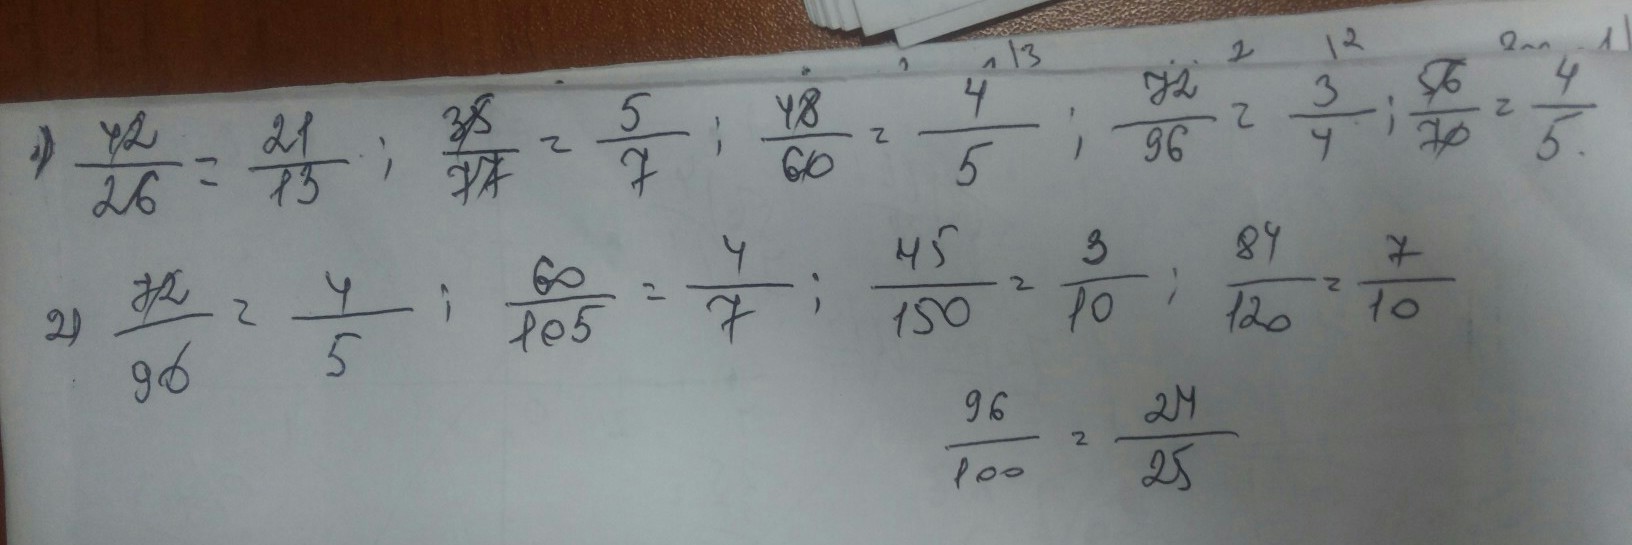 1) 42/26 = 21/13 ; 35/77 = 5/7 ; 48/60 = 4/5 ; 72/96 = 3/4 ; 56/70 = 4/5.
2) 72/96 = 4/5 ; 60/105 = 4/7 ; 45/150 = 3/10 ; 84/120 = 7/10
96/100 = 24/25